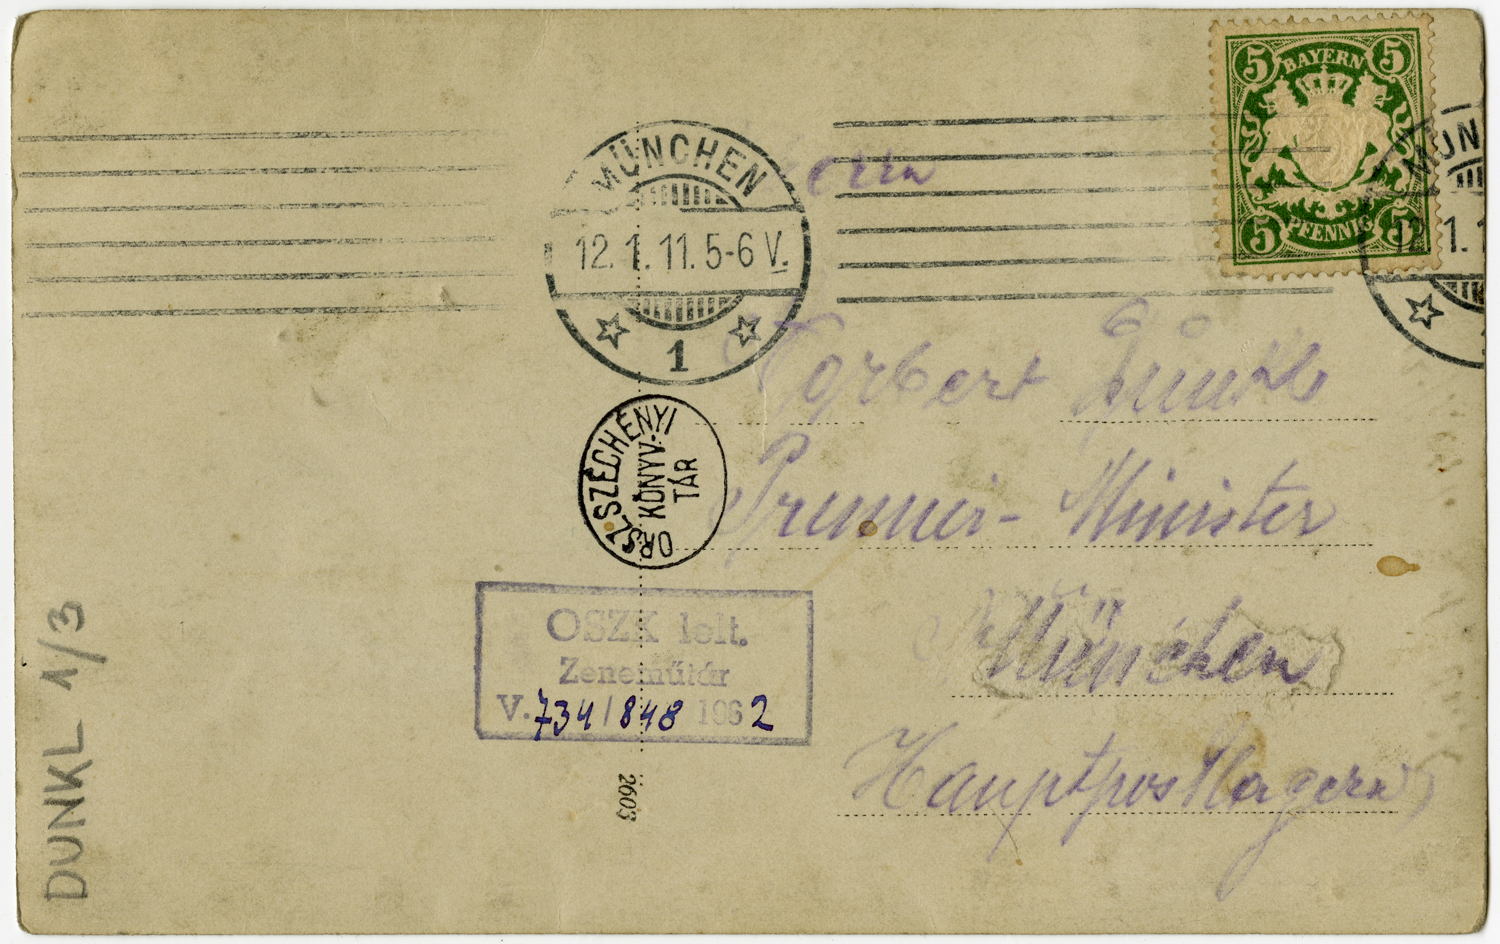 5 BAYERN 5
5 PFENNIG 5
MÜNCHEN
12.1.11.5-6 V.
1
MÜN
12.1.1
Norbert Dunkl
Premier-Minister
München
Hauptpostlagern
ORSZ. SZÉCHÉNYI
KÖNYV-
TÁR
OSZK lelt.
Zeneműtár
V. 734/848 1962
2603
DUNKL 1/3